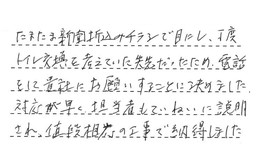 たまたま新聞折込みチラシで目にし、丁度
トイレ交換を考えていた矢先だったため、電話
をして貴社にお願いすることに決めました。
対応が早く担当者もていねいに説明
され、値段相応の工事で納得しました